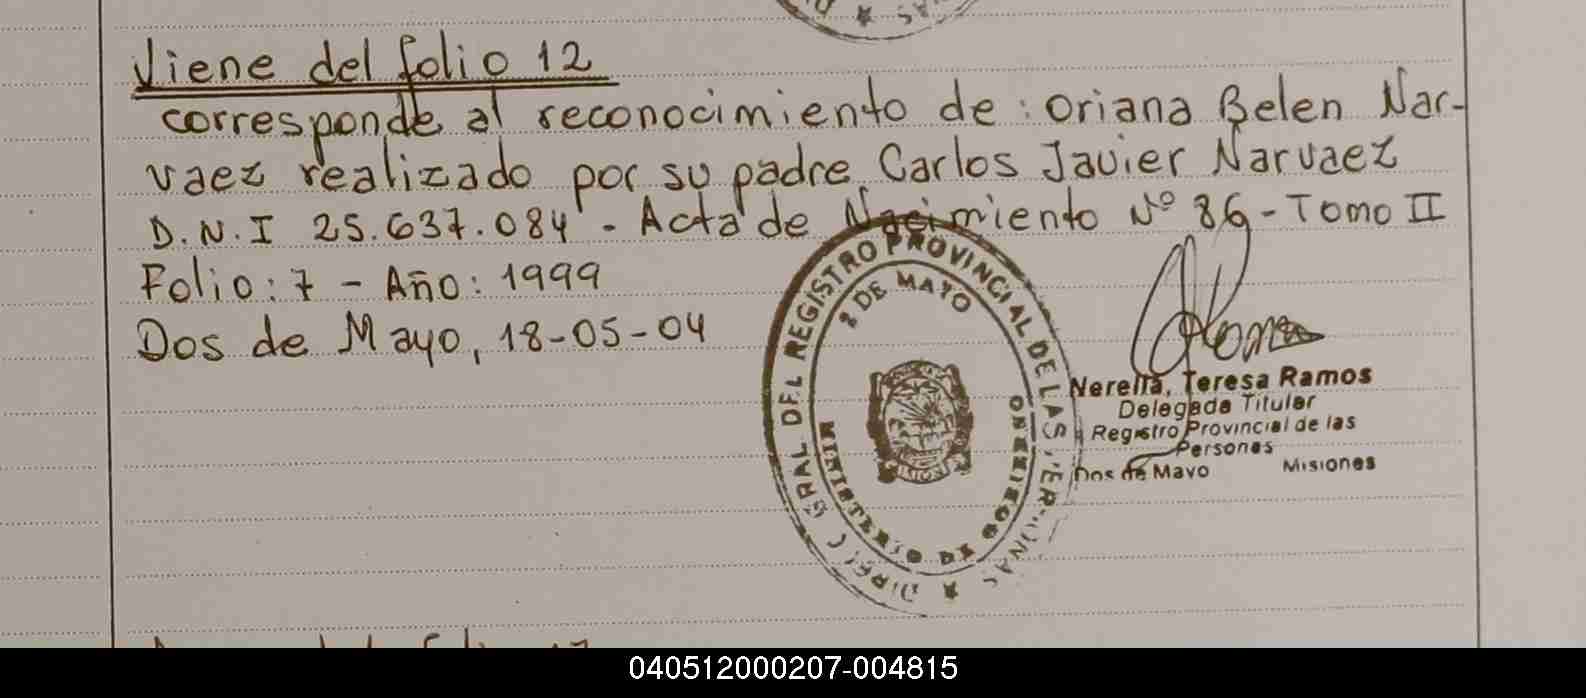 Viene del folio 12
corresponde al reconocimiento de: Oriana Belen Nar-
vaez realizado por su padre Carlos Javier Narvaez
D.N.I 25.637.084 - Acta de Nacimiento Nº 86 - Tomo II
Folio: 7 - Año: 1999
Dos de Mayo, 18-05-04
GRAL DEL REGISTRO PROVINCIAL DE LAS PERSONAS
2 DE MAYO
MINISTERIO DE GOBIERNO
Nerella, Teresa Ramos
Delegada Titular
Registro Provincial de las
Personas
Dos de Mayo Misiones
040512000207-004815